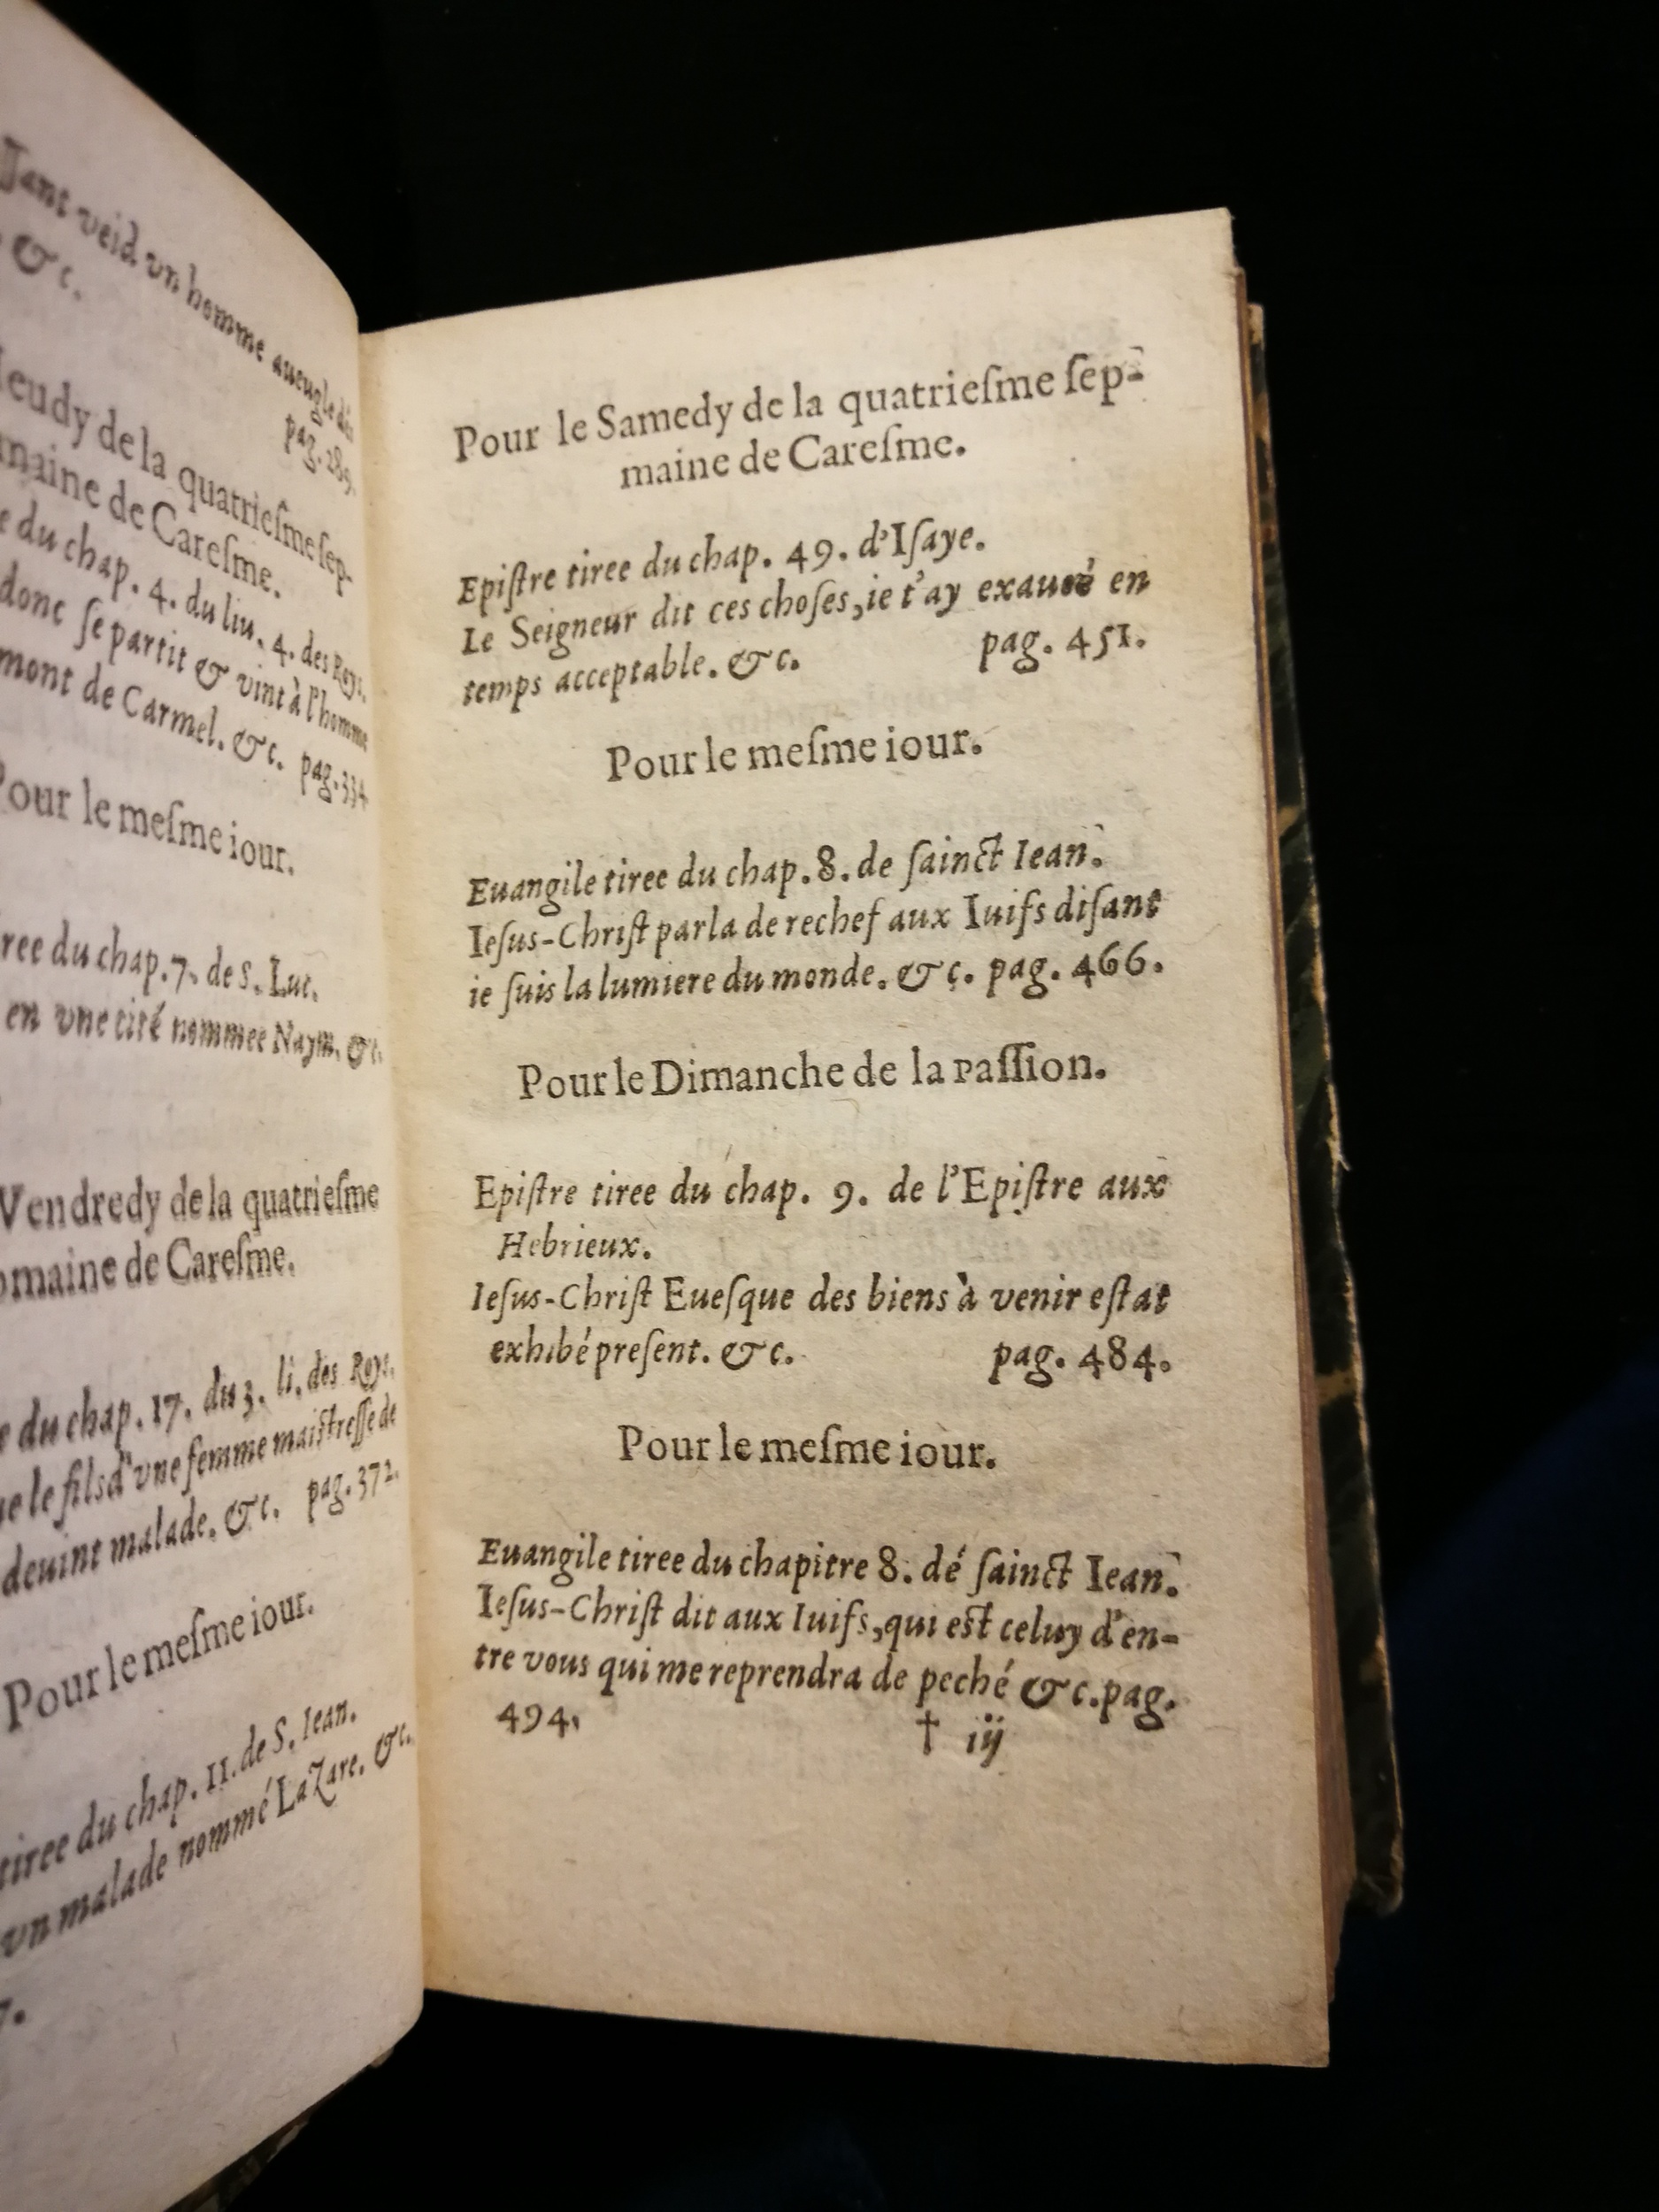 sant veid vn homme aueugle
. &c.
pag. 289.
Ieudy de la quatriesme sep-
maine de Caresme.
e du chap. 4. du liu. 4. des Roys.
donc se partit & vint à l'homme
mont de Carmel. &c. pag. 334
Pour le mesme iour.
iree du chap. 7. de S. Luc.
en vne cité nommee Naym. &c.
Vendredy de la quatriesme
maine de Caresme.
e du chap. 17. du 3. li. des Roys.
ue le fils d'vne femme maistresse de
deuint malade. &c. pag. 372.
Pour le mesme iour.
tiree du chap. 11. de S. Iean.
vn malade nommé LaZare. &c.
7.
Pour le Samedy de la quatriesme sep-
maine de Caresme.
Epistre tiree du chap. 49. d'Isaye.
Le Seigneur dit ces choses, ie t'ay exaucé en
temps acceptable. &c. pag. 451.
Pour le mesme iour.
Euangile tiree du chap. 8. de sainct Iean.
Iesus-Christ parla de rechef aux Iuifs disant
ie suis la lumiere du monde. &c. pag. 466.
Pour le Dimanche de la passion.
Epistre tiree du chap. 9. de l'Epistre aux
Hebrieux.
Iesus-Christ Euesque des biens à venir estat
exhibé present. &c. pag. 484.
Pour le mesme iour.
Euangile tiree du chapitre 8. dé sainct Iean.
Iesus-Christ dit aux Iuifs, qui est celuy d'en-
tre vous qui me reprendra de peché &c. pag.
494.
† iij